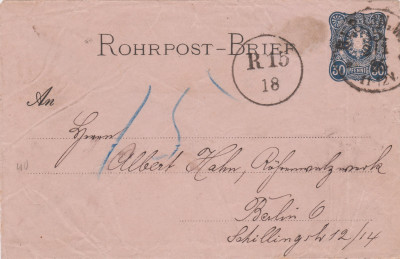 ROHRPOST-BRIEF
30 PFENNIG 30
R 15
18
15
An
Herrn
Albert Hahn, Röhrenwalzwerk
Berlin O
Schillingstr 12/14